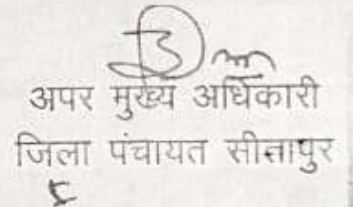 अपर मुख्य अधिकारी
जिला पंचायत सीतापुर